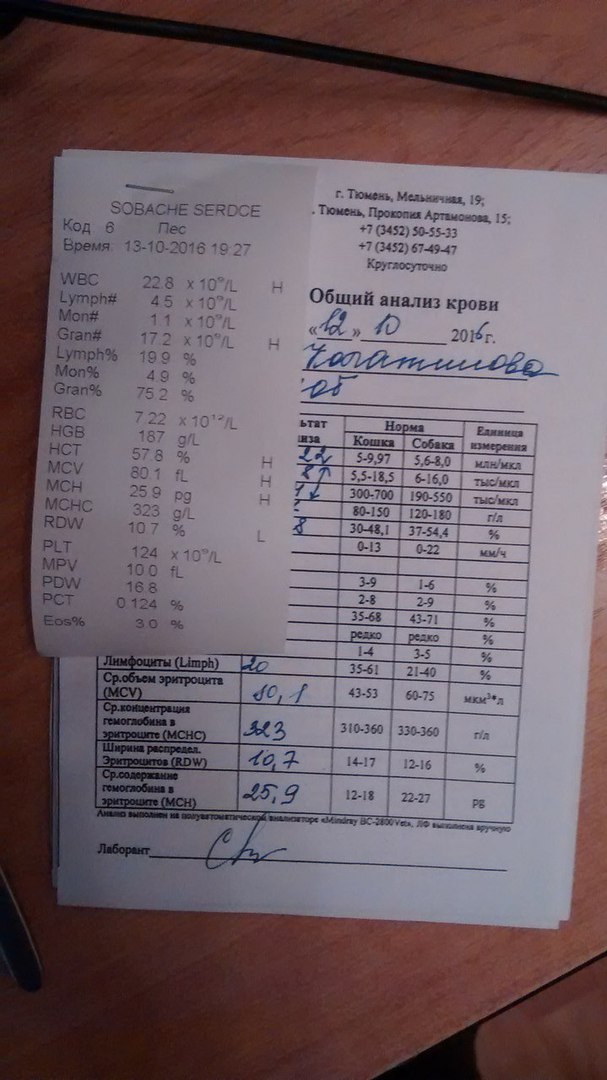 SOBACHE SERDCE
Код 6 Пес
Время: 13-10-2016 19:27
WBC 22.8 x 10⁹/L H
Lymph# 4.5 x 10⁹/L
Mon# 1.1 x 10⁹/L
Gran# 17.2 x 10⁹/L H
Lymph% 19.9 %
Mon% 4.9 %
Gran% 75.2 %
RBC 7.22 x 10¹²/L
HGB 187 g/L
HCT 57.8 % H
MCV 80.1 fL H
MCH 25.9 pg H
MCHC 323 g/L
RDW 10.7 % L
PLT 124 x 10⁹/L
MPV 10.0 fL
PDW 16.8
PCT 0.124 %
Eos% 3.0 %
г. Тюмень, Мельничная, 19;
. Тюмень, Прокопия Артамонова, 15;
+7 (3452) 50-55-33
+7 (3452) 67-49-47
Круглосуточно
Общий анализ крови
«12» 10 2016 г.
Норма Единица измерения
Кошка Собака
22 5-9,97 5,6-8,0 млн/мкл
5,5-18,5 6-16,0 тыс/мкл
300-700 190-550 тыс/мкл
80-150 120-180 г/л
8 30-48,1 37-54,4 %
0-13 0-22 мм/ч
3-9 1-6 %
2-8 2-9 %
35-68 43-71 %
редко редко %
1-4 3-5 %
Лимфоциты (Limph) 20 35-61 21-40 %
Ср.объем эритроцита
(MCV) 80,1 43-53 60-75 мкм³*л
Ср.концентрация
гемоглобина в
эритроците (MCHC) 323 310-360 330-360 г/л
Ширина распредел.
Эритроцитов (RDW) 10,7 14-17 12-16 %
Ср.содержание
гемоглобина в
эритроците (MCH) 25,9 12-18 22-27 pg
Анализ выполнен на полуавтоматическом анализаторе «Mindray BC-2800Vet», ЛФ выполнена вручную
Лаборант